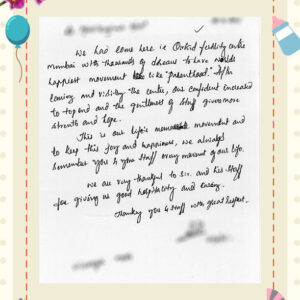 We had come here in Orchid fertility centre
Mumbai with thousands of dreams to have worlds
happiest movement like "Parenthood." After
coming and visiting the centre, our confident increased
to top and and the gentleness of staff gives more
strenth and hope.
This is our life's movement and
to keep this joy and happiness, we always
remember you & your staff every movement of our life.
We are very thankful to sir. and his staff
for giving us good hospitality and caring.
Thanking you & staff with great respect.